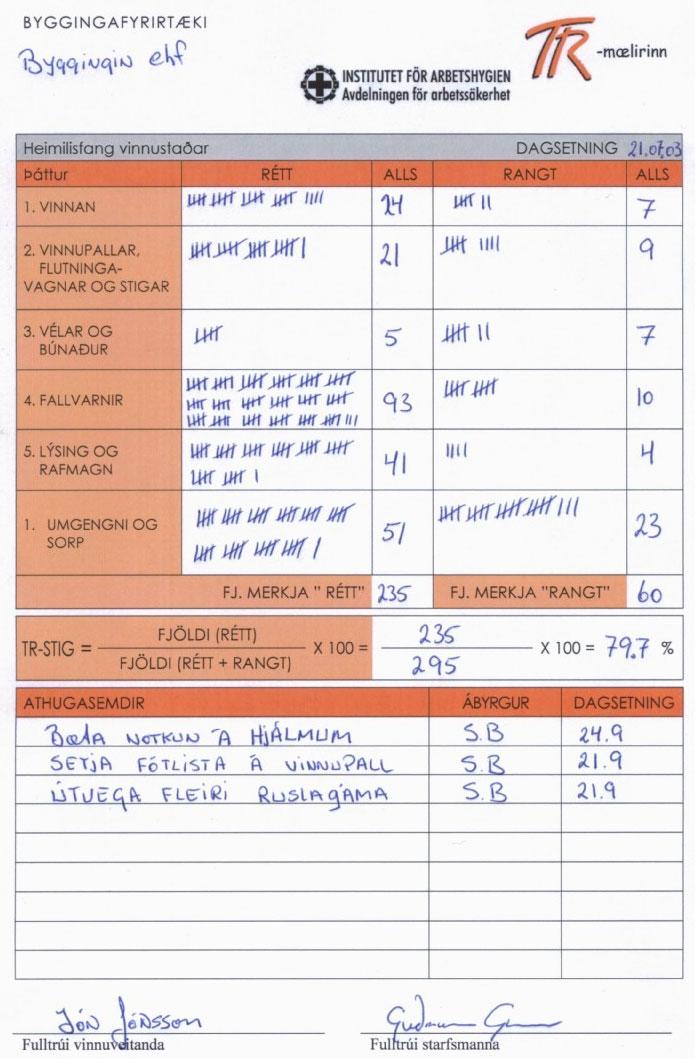 BYGGINGAFYRIRTÆKI
Byggingin ehf
TR -mælirinn
INSTITUTET FÖR ARBETSHYGIEN
Avdelningen för arbetssäkerhet
Heimilisfang vinnustaðar DAGSETNING 21.07.03
Þáttur RÉTT ALLS RANGT ALLS
1. VINNAN 24 7
2. VINNUPALLAR, 21 9
FLUTNINGA-
VAGNAR OG STIGAR
3. VÉLAR OG 5 7
BÚNAÐUR
4. FALLVARNIR 93 10
5. LÝSING OG 41 4
RAFMAGN
1. UMGENGNI OG 51 23
SORP
FJ. MERKJA " RÉTT" 235 FJ. MERKJA "RANGT" 60
TR-STIG = FJÖLDI (RÉTT) X 100 = 235 X 100 = 79.7 %
FJÖLDI (RÉTT + RANGT) 295
ATHUGASEMDIR ÁBYRGUR DAGSETNING
Bæta NOTKUN Á HJÁLMUM S.B 24.9
SETJA FÓTLISTA Á VINNUPALL S.B 21.9
ÚTVEGA FLEIRI RUSLAGÁMA S.B 21.9
Jón Jónsson
Fulltrúi vinnuveitanda Fulltrúi starfsmanna